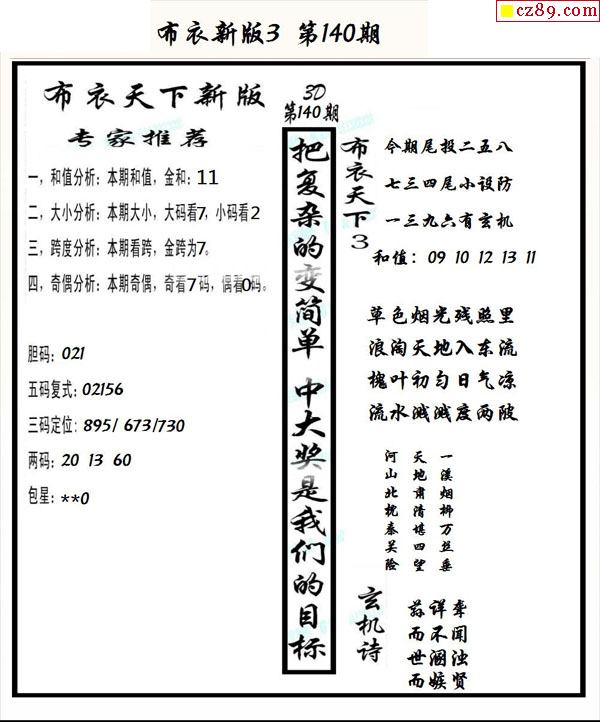 cz89.com
布衣新版3 第140期
布衣天下新版
专家推荐
一，和值分析：本期和值，金和：11
二，大小分析：本期大小，大码看7，小码看2
三，跨度分析：本期看跨，金跨为7。
四，奇偶分析：本期奇偶，奇看7码，偶看0码。
胆码：021
五码复式：02156
三码定位：895/ 673/730
两码：20 13 60
包星：**0
3D
第140期
把复杂的变简单 中大奖是我们的目标
布衣天下3
今期尾投二五八
七三四尾小设防
一三九六有玄机
和值：09 10 12 13 11
草色烟光残照里
浪淘天地入东流
槐叶初匀日气凉
流水溅溅度两陂
一溪烟柳万丝垂
天地肃清堪四望
河山北枕秦关险
玄机诗
详牽
而不闻
世溷浊
而嫉贤